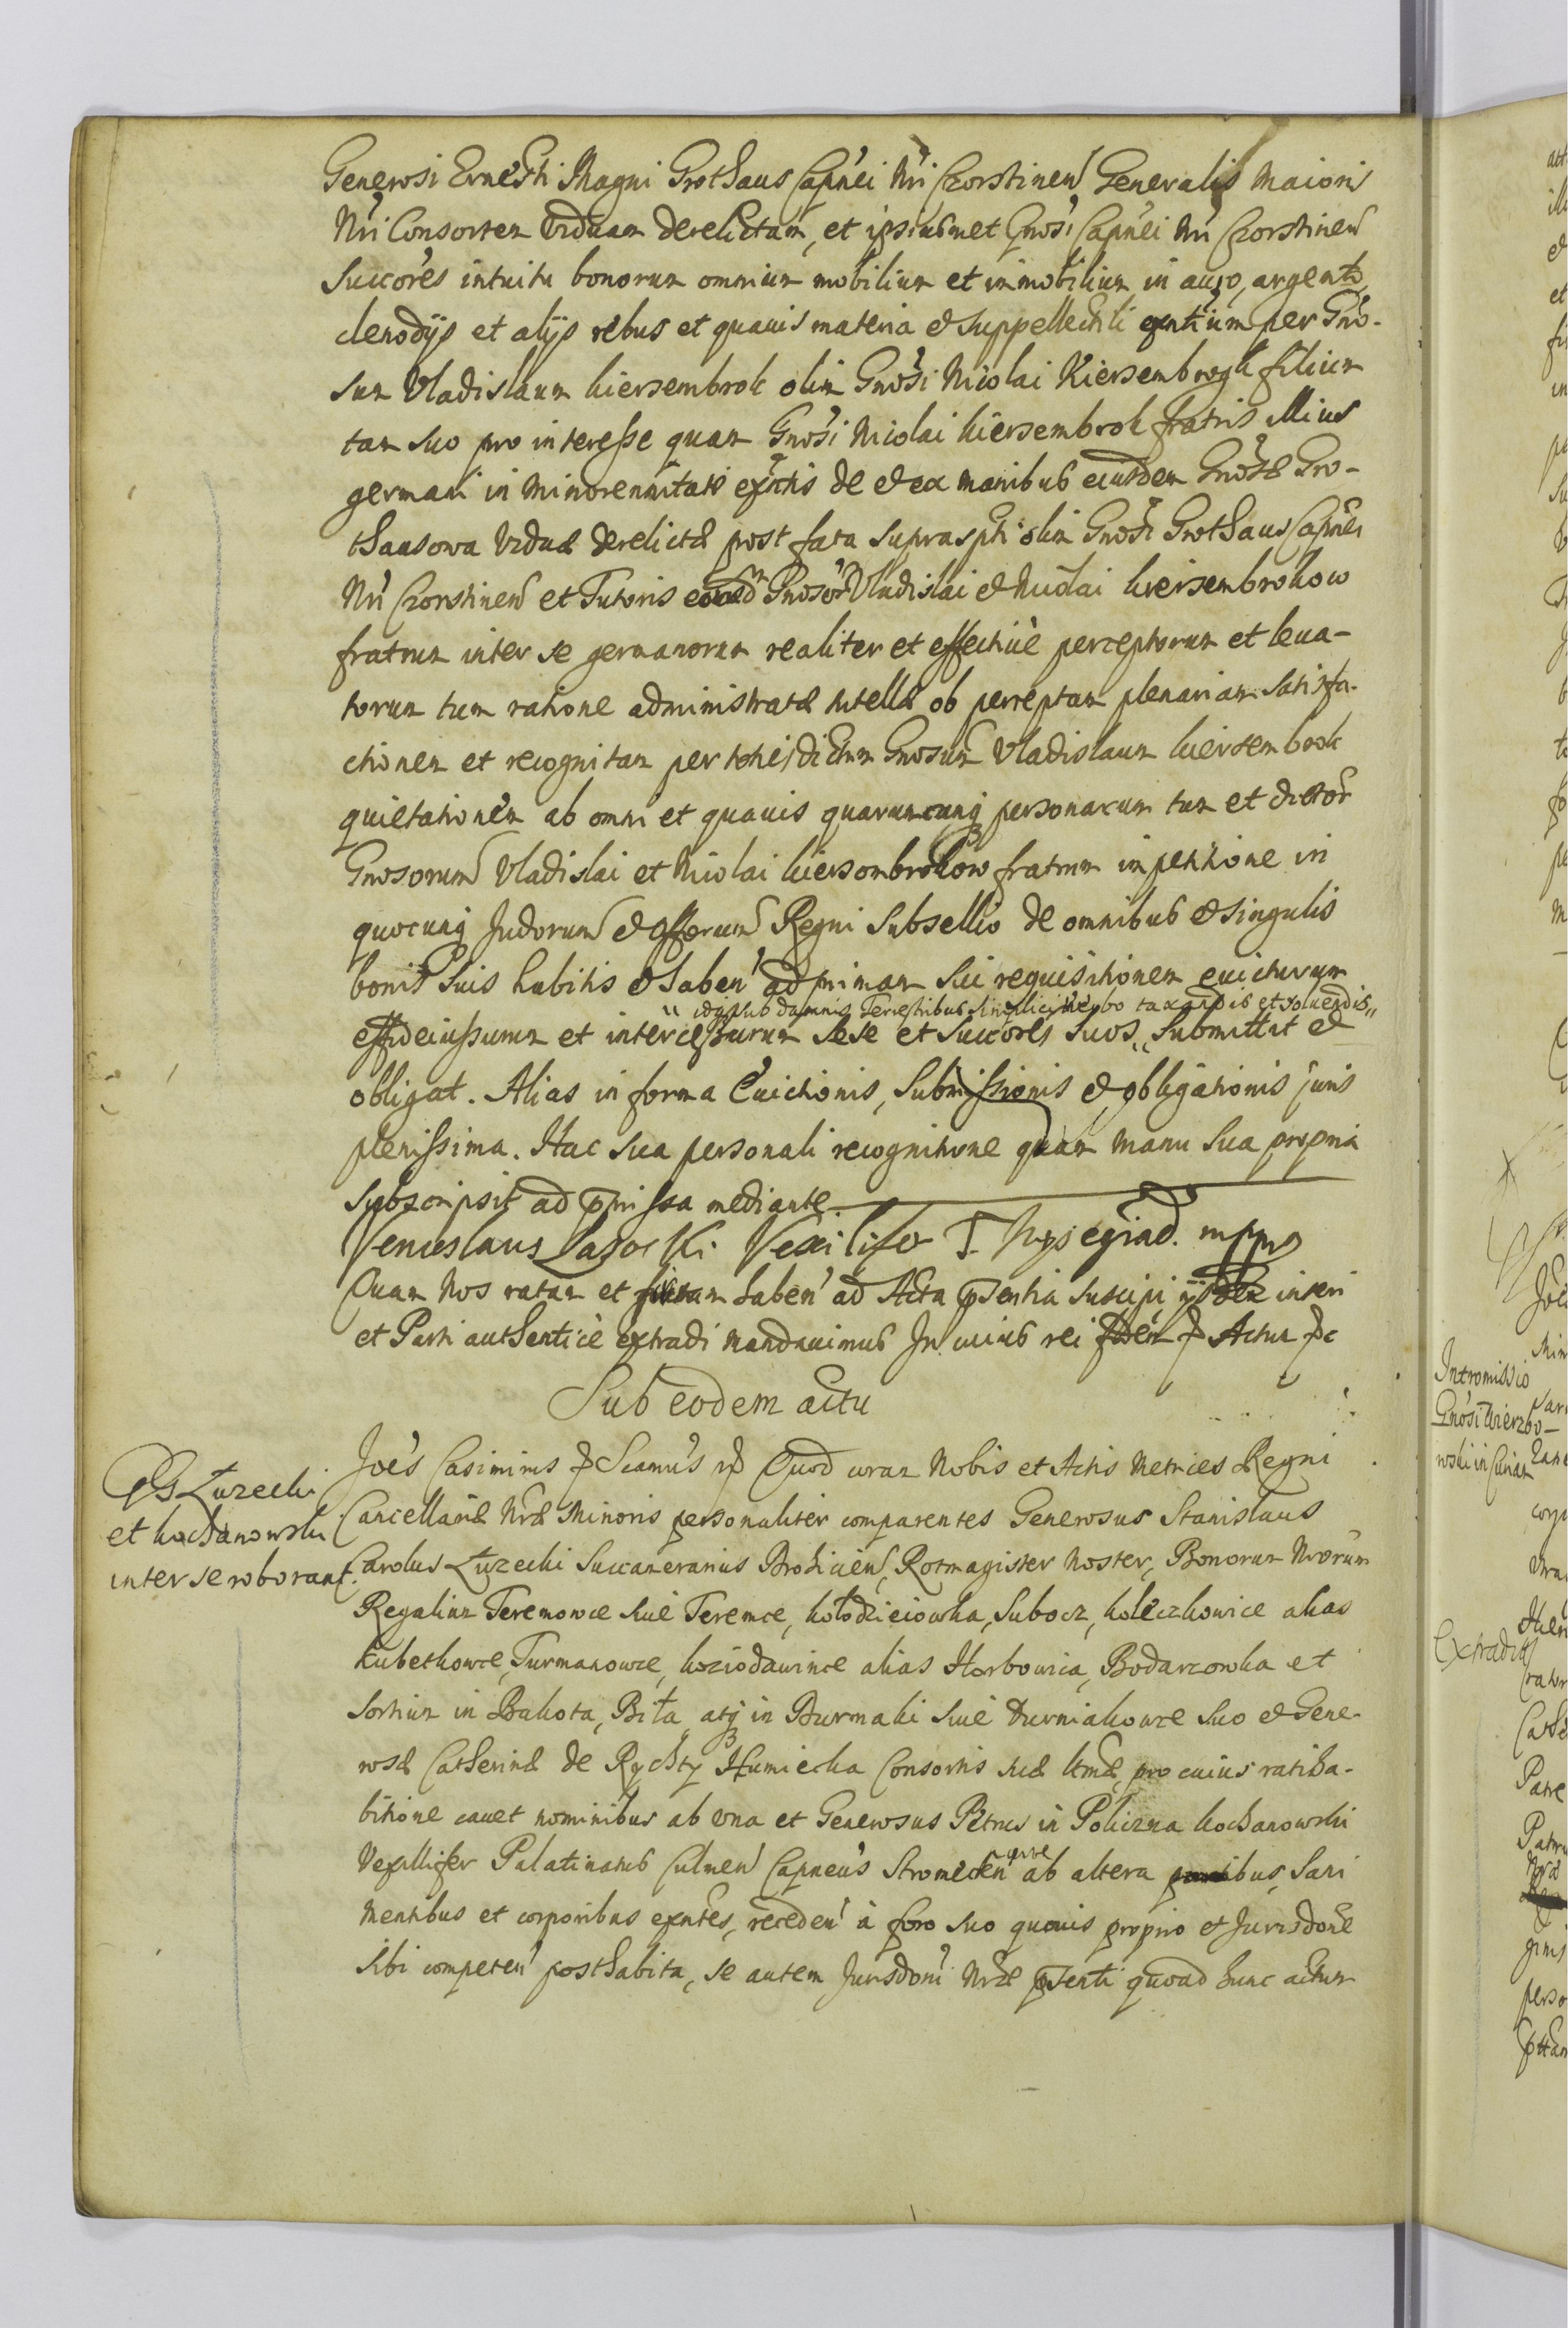 Generosi Ernesti Magni Grothaus Capnei Nri Czorstinen Generalis Maioris
Nri Consortem Viduam derelictam, et ipsiusmet Gnosi Capnei Nri Czorstinen
Succores intuitu bonorum omnium mobilium et immobilium in auro, argento,
clenodijs et alijs rebus et quavis materia et suppellectili exntium per Gno-
sum Vladislaum kiersembrok olim Gnosi Nicolai Kiersembrogk filium
tam suo pro interesse quam Gnosi Nicolai kiersembrok fratris illius
germani in minorennitate exntis de et ex manibus eiusdem Gnosæ Gro-
thausowa Viduæ derelictæ post fata suprasphi olim Gnosi Grothaus Capnei
Nri Czorstinen et Tutoris eorundm Gnosor Vladislai et Nicolai kiersembrokow
fratrum inter se germanorum realiter et effective perceptorum et leva-
torum tum ratione administratæ tutellæ ob perceptam plenariam satisfa-
ctionem et recognitam per totiesdictum Gnosum Vladislaum kiersembrok
quietationem ab omni et quavis quarumcunq personarum tum et dictor
Gnosorum Vladislai et Nicolai kiersombrokow fratrum impetitione in
quocunq Judiorum et Offorum Regni Subsellio de omnibus et singulis
bonis suis habitis et haben ad primam sui requisitionem evicturum
idq sub damnis Terrestribus simplici verbo taxandis et solvendis
effideiussurum et intercessurum sese et succores suos submittit et
obligat. Alias in forma Evictionis, Submissionis et obligationis juris
plenissima. Hac sua personali recognitione quam manu sua propria
subscripsit ad pmissa mediante
Venceslaus Lasocki Vexilifer T. Wyszegrad. mppa
Quam Nos ratam et gratam haben ad Acta psentia suscipi ijsdem inseri
et Parti authentice extradi mandavimus In cuius rei fidem p Actum pc
Sub eodem actu
GG Łuzecki
et kochanowski
inter se roborant.
Joes Casimirus p Seamus p Quod coram Nobis et Actis Metrices Regni
Cancellariæ Nræ Minoris personaliter comparentes Generosus Stanislaus
Carolus Łuzecki Succamerarius Podlicien, Rotmagister Noster, Bonorum Nrorum
Regalium Teremowce sive Teremce, kołodzieiowka, Subocz, koleczkowice alias
kubetkowce, Furmanowce, koziodawince alias Horbowica, Bodarzowka et
Sortium in Bakota, Biła, atq in Burmaki sive Durniakowce suo et Gene-
rosæ Catherinæ de Rychty Humiecka Consortis suæ ltmæ, pro cuius ratiha-
bitione cavet nominibus ab una et Generosus Petrus in Policzna kochanowski
Vexillifer Palatinatus Culmen Capneus Stromecen parte ab altera, sani
mentibus et corporibus exntes, receden à foro suo quovis proprio et Jurisdone
sibi competen posthabita, se autem Jurisdoni Nræ psenti quoad hunc actum
Intromissio
Gnosi Wierzbo-
wski in
Extradit